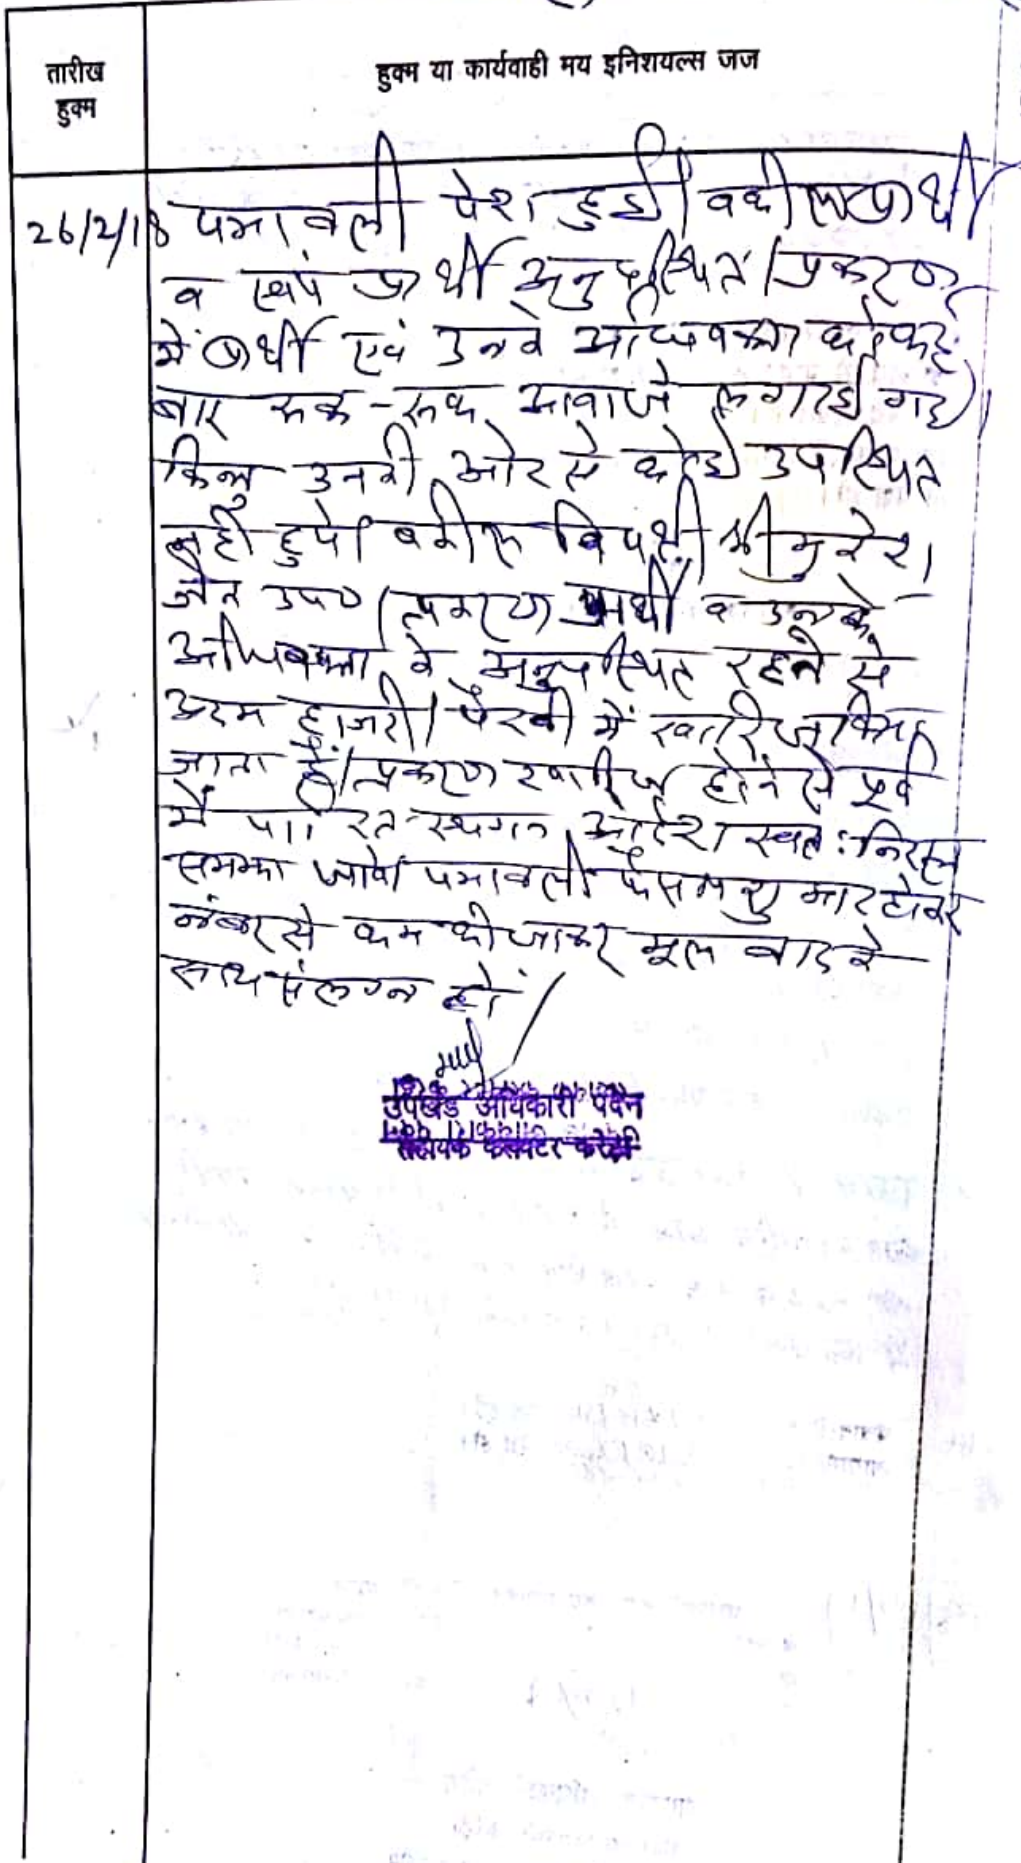 तारीख हुक्म
हुक्म या कार्यवाही मय इनिशयल्स जज
26/2/18 पत्रावली पेश हुई। वकील प्रार्थी
व स्वयं प्रार्थी अनुपस्थित। प्रकरण
में प्रार्थी एवं उनके अधिवक्ता को कई
बार रुक-रुक आवाजे लगाई गई।
किन्तु उनकी ओर से कोई उपस्थित
नही हुये। वकील विपक्षी श्री
जैन उप०। प्रकरण प्रार्थी व उनके
अधिवक्ता के अनुपस्थित रहने से
अदम हाजरी/पैरवी में खारिज किया
जाता है। प्रकरण खारीज होने से पूर्व
में पारित स्थगन आदेश स्वतः निरस्त
समझा जावे। पत्रावली फैसल शुमार होकर
नंबर से कम की जाकर मूल वाद के
साथ संलग्न हो।
उपखंड अधिकारी पदेन
सहायक कलक्टर